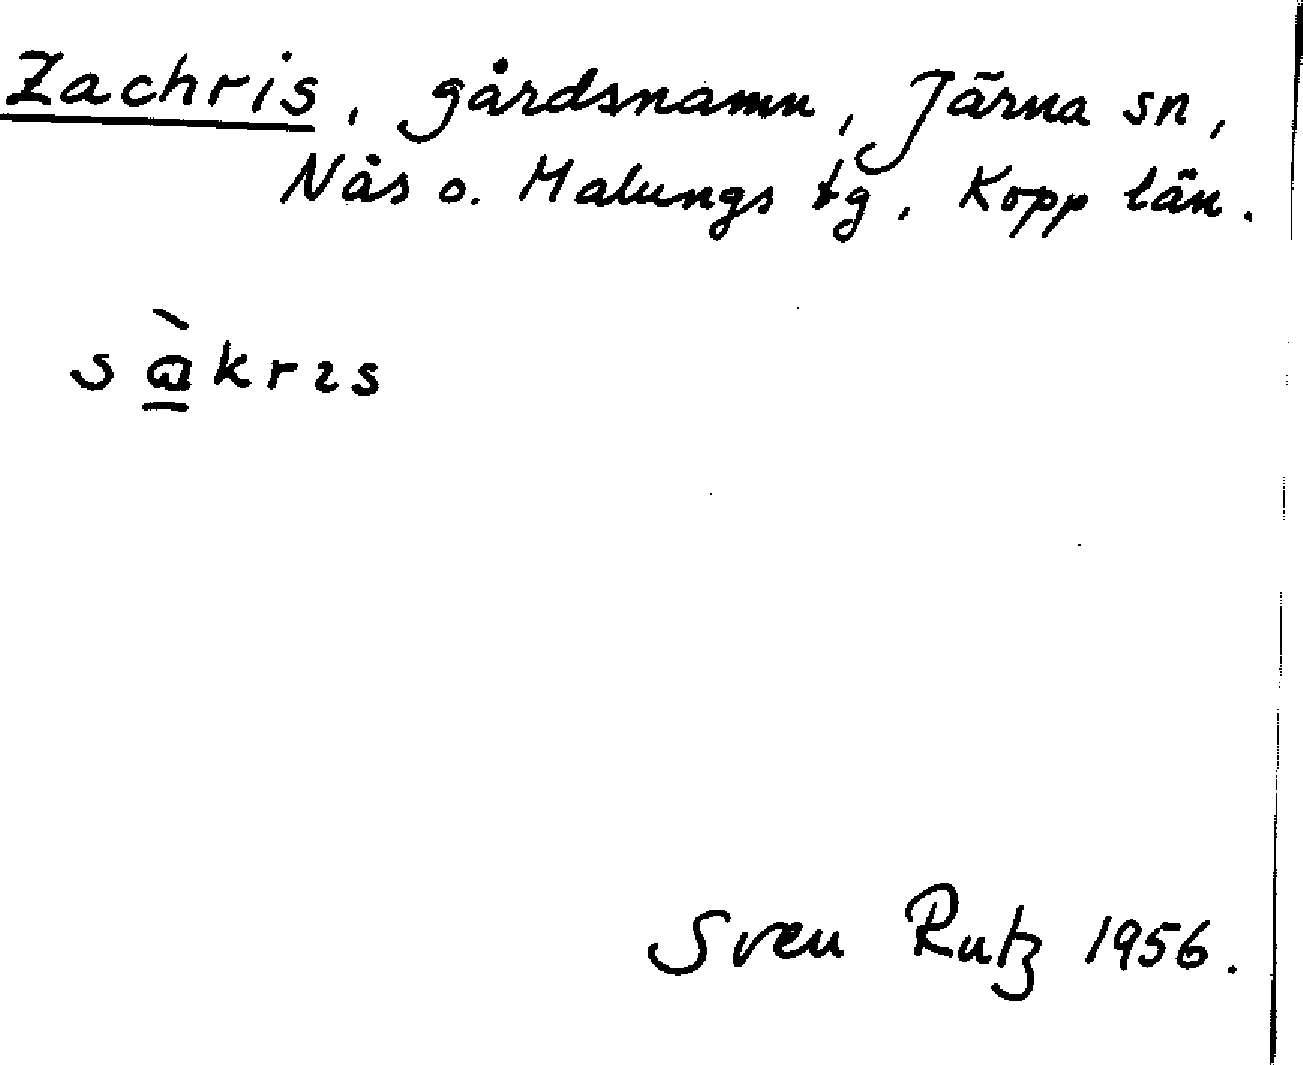 Zachris, gårdsnamn, Järna sn,
Nås o. Malungs tg, Kopp län.
sàkrɩs
Sven Rutz 1956.